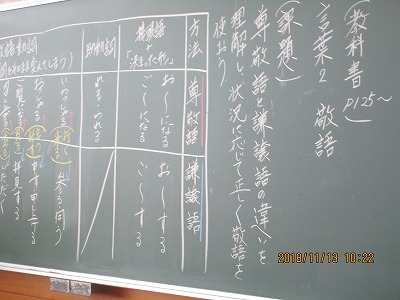 (教科書 P125～)
言葉2 敬語
(課題)
尊敬語と謙譲語の違いを
理解し、状況に応じて正しく敬語を
使おう
方法
尊敬語
謙譲語
接頭語
+
「決まった形」
お〜になる
ご〜になる
お〜する
ご〜する
助動詞
れる・られる
いらっしゃる
参る 伺う
おっしゃる
申す 申し上げる
拝見する
2018/11/13 10:22